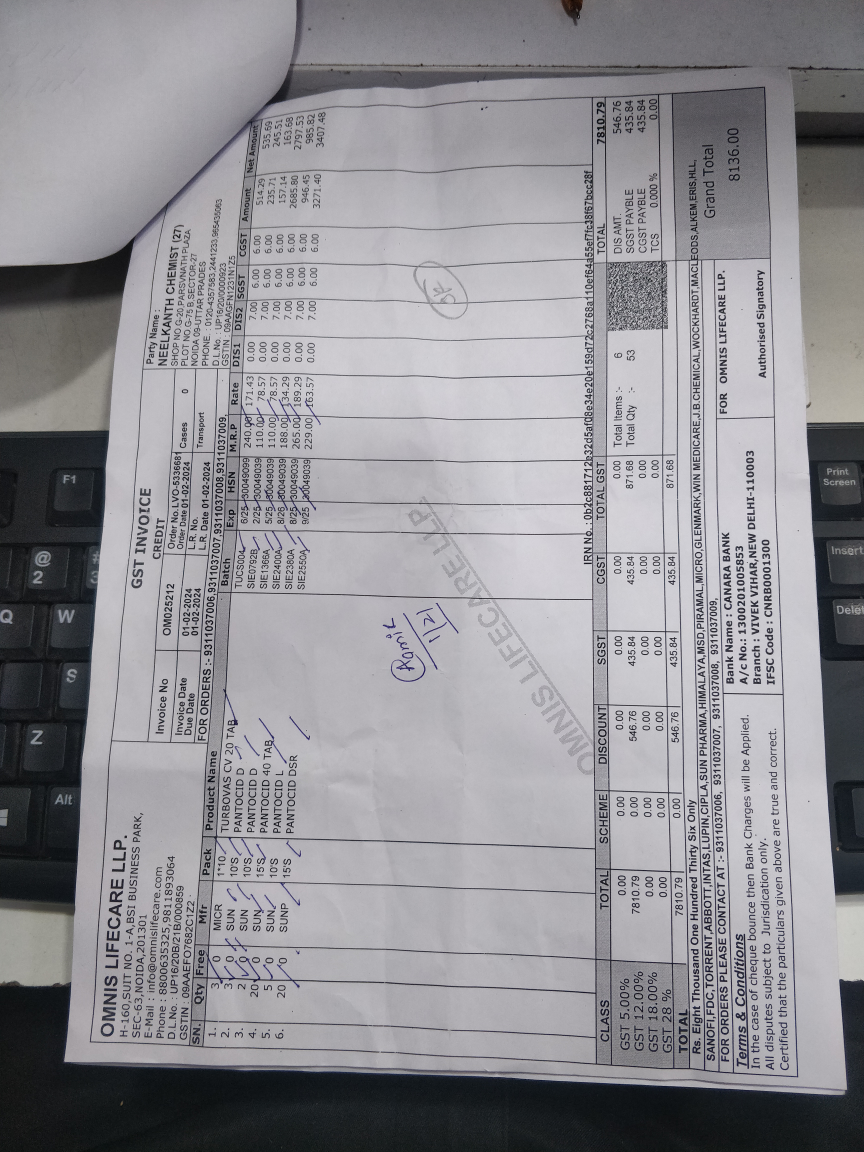 OMNIS LIFECARE LLP.
H-160,SUIT NO. 1-A,BSI BUSINESS PARK,
SEC-63,NOIDA,201301
E-Mail : info@omnislifecare.com
Phone : 8800635325,9811893064
D.L.No. : UP16/20B/21B/000859
GSTIN : 09AAEFO7682C1Z2
GST INVOICE
CREDIT
Invoice No OM025212 Order No.LVO-5336681
Order Date 01-02-2024 Cases 0
Invoice Date 01-02-2024 L.R. No.
Due Date 01-02-2024 L.R. Date 01-02-2024 Transport
FOR ORDERS :- 9311037006,9311037007,9311037008,9311037009,
Party Name :
NEELKANTH CHEMIST (27)
SHOP NO G-20,PARSVNATH PLAZA
PLOT NO G-75 B,SECTOR-27
NOIDA 09-UTTAR PRADES
PHONE : 0120-4357583,2441233,965435063
D.L.No : UP16/20/0000923
GSTIN : 09AAGFN1231N1Z5
SN. Qty Free Mfr Pack Product Name Batch Exp HSN M.R.P Rate DIS1 DIS2 SGST CGST Amount Net Amount
1. 3 0 MICR 1*10 TURBOVAS CV 20 TAB TUCS004 6/25 30049099 240.00 171.43 0.00 7.00 6.00 6.00 514.29 535.69
2. 3 0 SUN 10'S PANTOCID D SIE0792B 2/25 30049039 110.00 78.57 0.00 7.00 6.00 6.00 235.71 245.51
3. 2 0 SUN 10'S PANTOCID D SIE1366A 5/25 30049039 110.00 78.57 0.00 7.00 6.00 6.00 157.14 163.68
4. 20 0 SUN 15'S PANTOCID 40 TAB SIE2400A 8/26 30049039 188.00 134.29 0.00 7.00 6.00 6.00 2685.80 2797.53
5. 5 0 SUN 10'S PANTOCID L SIE2380A 8/25 30049039 265.00 189.29 0.00 7.00 6.00 6.00 946.45 985.82
6. 20 0 SUNP 15'S PANTOCID DSR SIE2550A 9/25 30049039 229.00 163.57 0.00 7.00 6.00 6.00 3271.40 3407.48
OK
1/21
OMNIS LIFECARE LLP.
IRN No.: 0b2c881712b32d5af08e34e20e159d72c2768a110ef64a55ef7fc38f67bcc28f
CLASS TOTAL SCHEME DISCOUNT SGST CGST TOTAL GST
GST 5.00% 0.00 0.00 0.00 0.00 0.00 0.00
GST 12.00% 7810.79 0.00 546.76 435.84 435.84 871.68
GST 18.00% 0.00 0.00 0.00 0.00 0.00 0.00
GST 28 % 0.00 0.00 0.00 0.00 0.00 0.00
TOTAL 7810.79 0.00 546.76 435.84 435.84 871.68
Total Items :- 6
Total Qty :- 53
TOTAL 7810.79
DIS AMT. 546.76
SGST PAYBLE 435.84
CGST PAYBLE 435.84
TCS 0.000 % 0.00
Rs. Eight Thousand One Hundred Thirty Six Only
SANOFI,FDC,TORRENT,ABBOTT,INTAS,LUPIN,CIPLA,SUN PHARMA,HIMALAYA,MSD,PIRAMAL,MICRO,GLENMARK,WIN MEDICARE,J.B.CHEMICAL,WOCKHARDT,MACLEODS,ALKEM,ERIS,HLL,
FOR ORDERS PLEASE CONTACT AT :- 9311037006, 9311037007, 9311037008, 9311037009,
Grand Total
8136.00
Terms & Conditions
In the case of cheque bounce then Bank Charges will be Applied.
All disputes subject to Jurisdication only.
Certified that the particulars given above are true and correct.
Bank Name : CANARA BANK
A/c No.: 1300201005853
Branch : VIVEK VIHAR,NEW DELHI-110003
IFSC Code : CNRB0001300
FOR OMNIS LIFECARE LLP.
Authorised Signatory
F1
@
2
#
3
Q
W
S
Z
Alt
Print
Screen
Insert